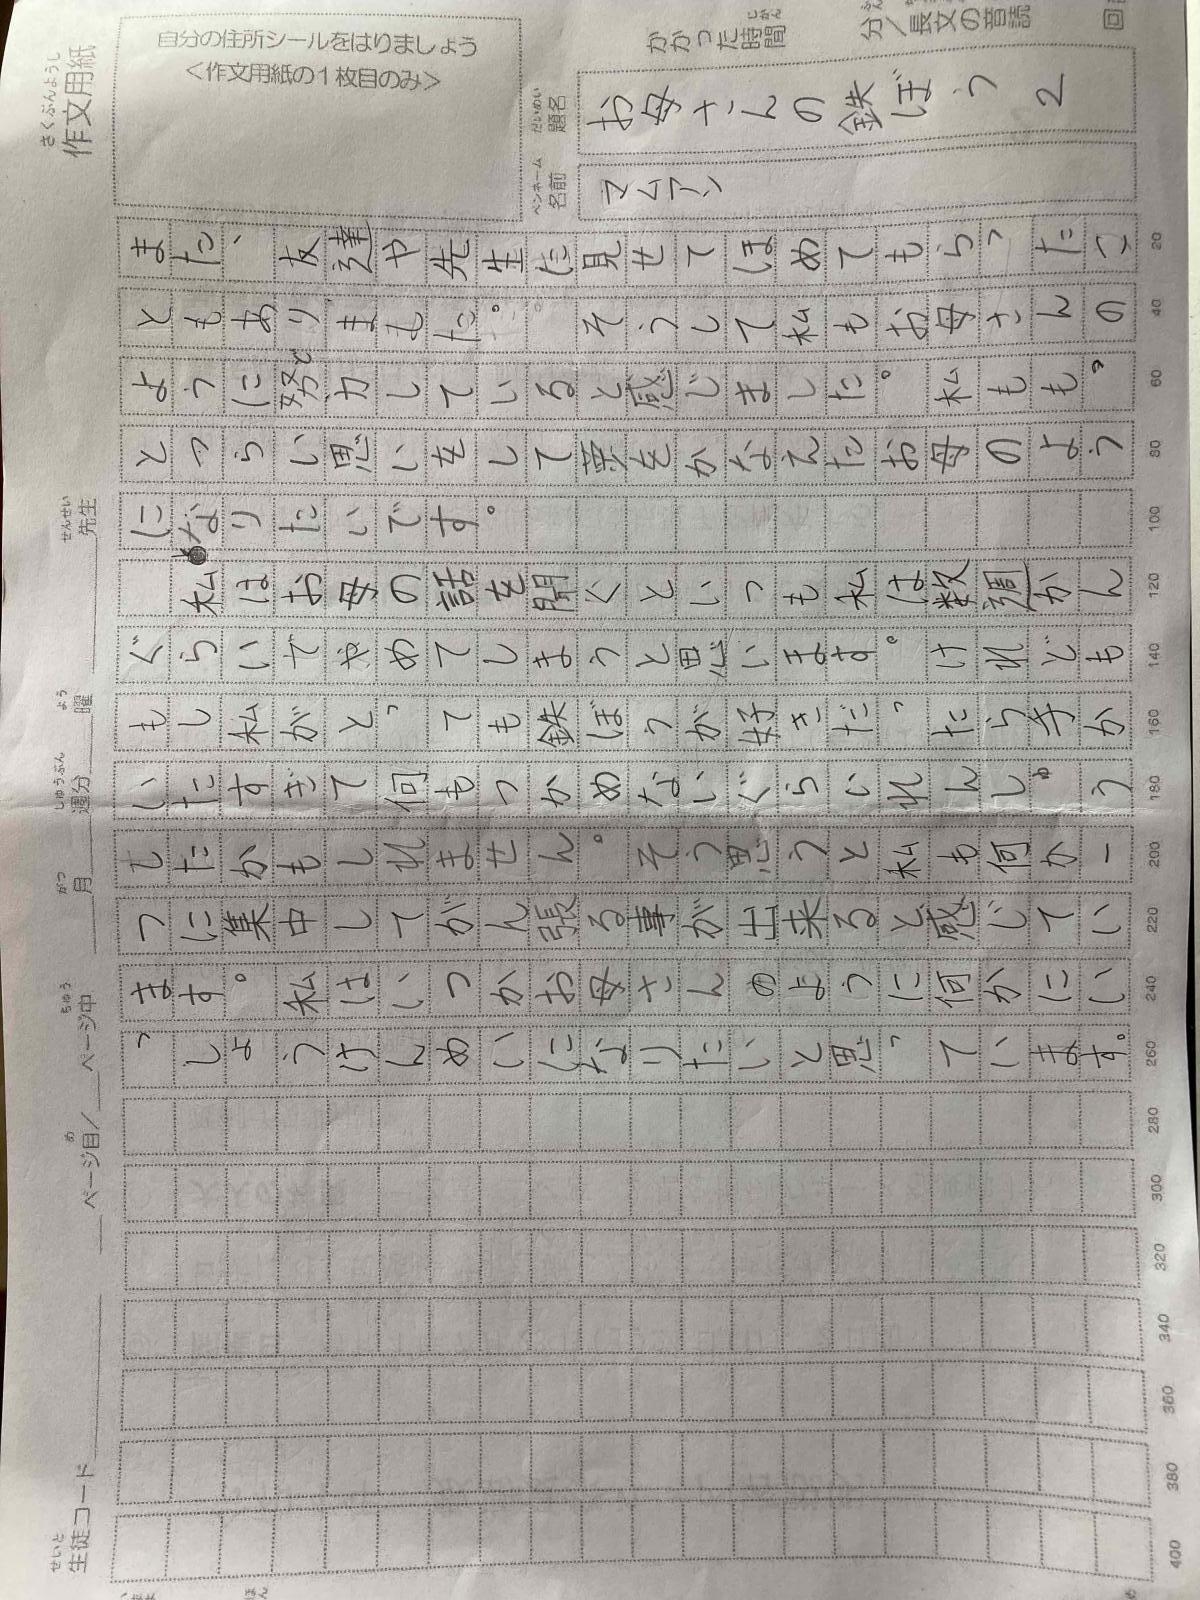 さくぶんようし
作文用紙
自分の住所シールをはりましょう
<作文用紙の1枚目のみ>
かかった時間
じかん
分/長文の音読
回
だいめい
題名
お母さんの鉄ぼう 2
ペンネーム
名前
マムアン
また、友達や先生に見せてほめてもらったこ
ともありました。そうして私もお母さんの
ように努力していると感じました。私ももっ
とつらい思いをして夢をかなえたお母のよう
になりたいです。
私はお母の話を聞くといつも私は数週かん
ぐらいでやめてしまうと思います。けれども
もし私がとっても鉄ぼうが好きだったら手か
いたすぎて何もつかめないぐらいれんしゅう
したかもしれません。そう思うと私も何か一
つに集中してがん張る事が出来ると感じてい
ます。私はいつかお母さんのように何かにい
っしょうけんめいになりたいと思っています。
20
40
60
80
100
120
140
160
180
200
220
240
260
280
300
320
340
360
380
400
せいと
生徒コード
め
ちゅう
ページ目/ ページ中
がつ
しゅうぶん
よう
月 週分 曜
せんせい
先生